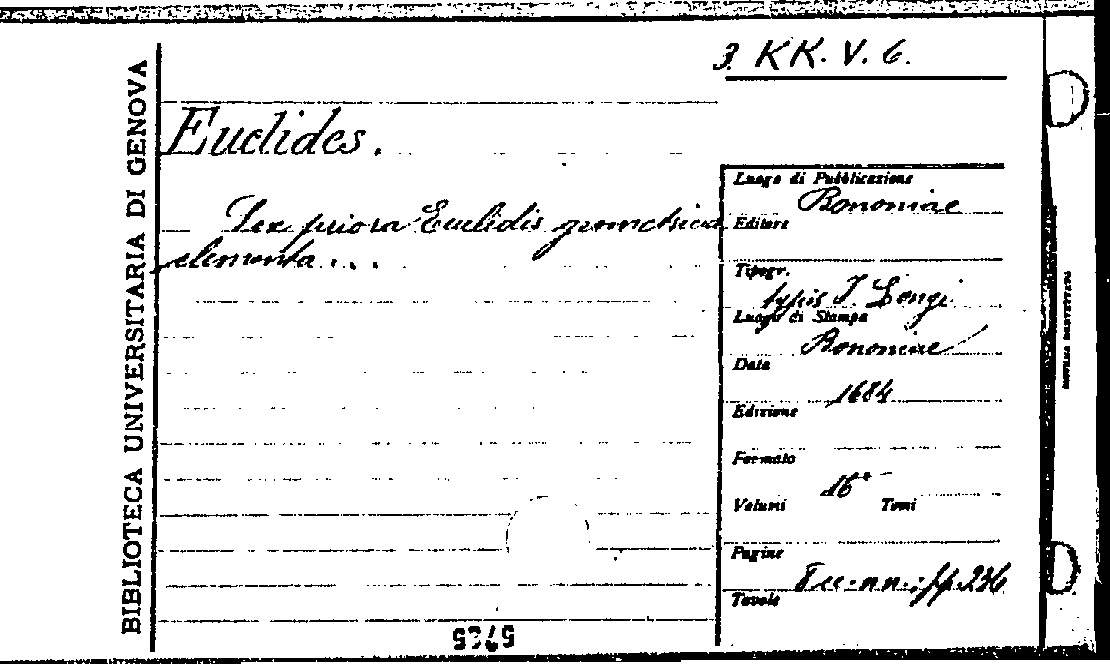 3. KK. V. 6.
BIBLIOTECA UNIVERSITARIA DI GENOVA
Euclides.
Sex priora Euclidis geometrica
elementa...
Luogo di Pubblicazione
Bononiae
Editore
Tipogr.
typis J. Longi
Luogo di Stampa
Bononiae
Data
1684
Edizione
Formato
16°
Volumi Tomi
Pagine
8 cc. nn.; pp. 236
Tavole